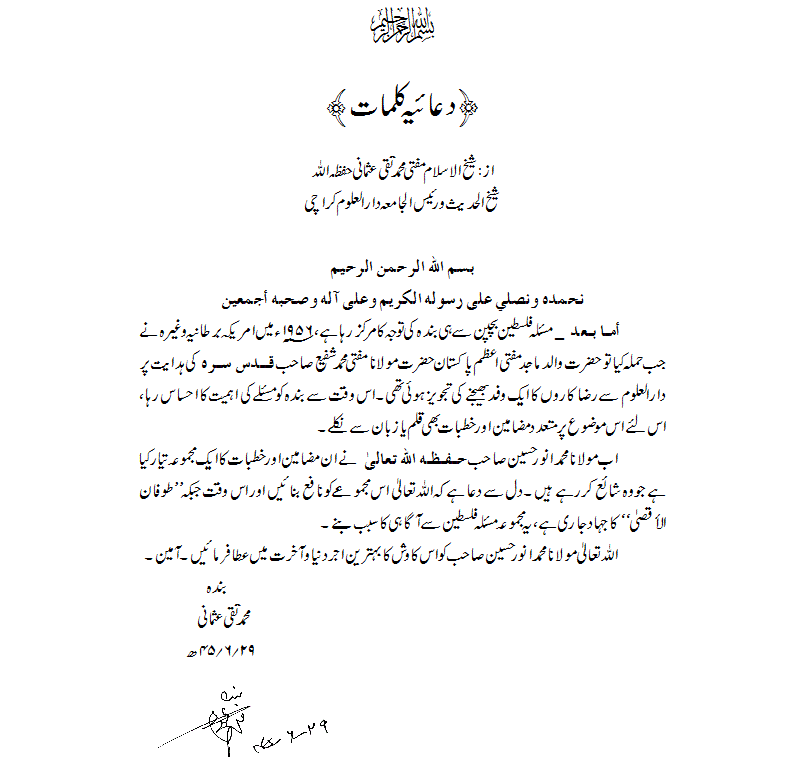 بسم اللہ الرحمن الرحیم
﴿دعائیہ کلمات﴾
از: شیخ الاسلام مفتی محمد تقی عثمانی حفظہ اللہ
شیخ الحدیث و رئیس الجامعہ دارالعلوم کراچی
بسم الله الرحمن الرحيم
نحمده ونصلي على رسوله الكريم وعلى آله وصحبه أجمعين
أما بعد ۔ مسئلہ فلسطین بچپن سے ہی بندہ کی توجہ کا مرکز رہا ہے، ۱۹۵۶ء میں امریکہ برطانیہ وغیرہ نے
جب حملہ کیا تو حضرت والد ماجد مفتی اعظم پاکستان حضرت مولانا مفتی محمد شفیع صاحب قدس سرہ کی ہدایت پر
دارالعلوم سے رضا کاروں کا ایک وفد بھیجنے کی تجویز ہوئی تھی۔ اس وقت سے بندہ کو مسئلے کی اہمیت کا احساس رہا،
اس لئے اس موضوع پر متعدد مضامین اور خطبات بھی قلم یا زبان سے نکلے۔
اب مولانا محمد انور حسین صاحب حفظہ اللہ تعالیٰ نے ان مضامین اور خطبات کا ایک مجموعہ تیار کیا
ہے جو وہ شائع کر رہے ہیں۔ دل سے دعا ہے کہ اللہ تعالیٰ اس مجموعے کو نافع بنائیں اور اس وقت جبکہ ’’طوفان
الأقصیٰ‘‘ کا جہاد جاری ہے، یہ مجموعہ مسئلہ فلسطین سے آگاہی کا سبب بنے۔
اللہ تعالیٰ مولانا محمد انور حسین صاحب کو اس کاوش کا بہترین اجر دنیا و آخرت میں عطا فرمائیں۔ آمین۔
بندہ
محمد تقی عثمانی
۲۹؍۶؍۴۵ھ
بندہ